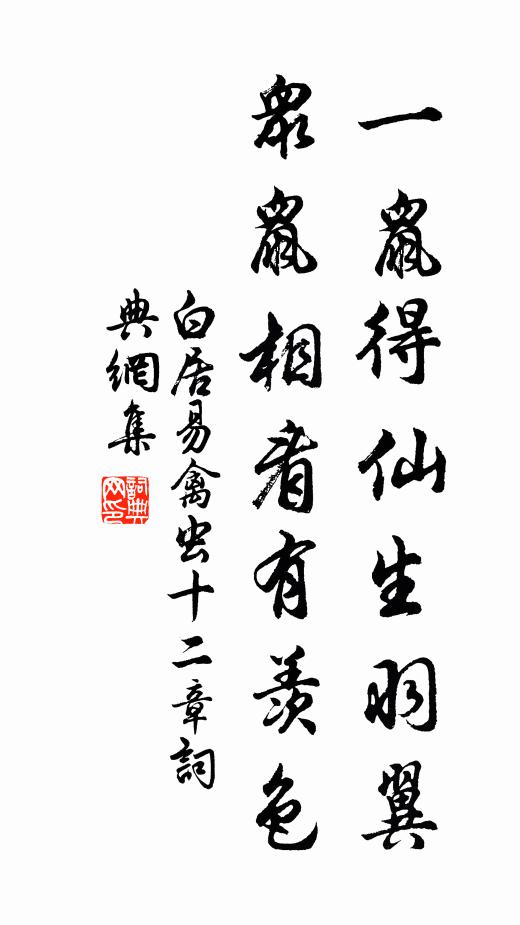 一鼠得仙生羽翼
眾鼠相看有羨色
白居易禽虫十二章詞
典網集
詞典网印